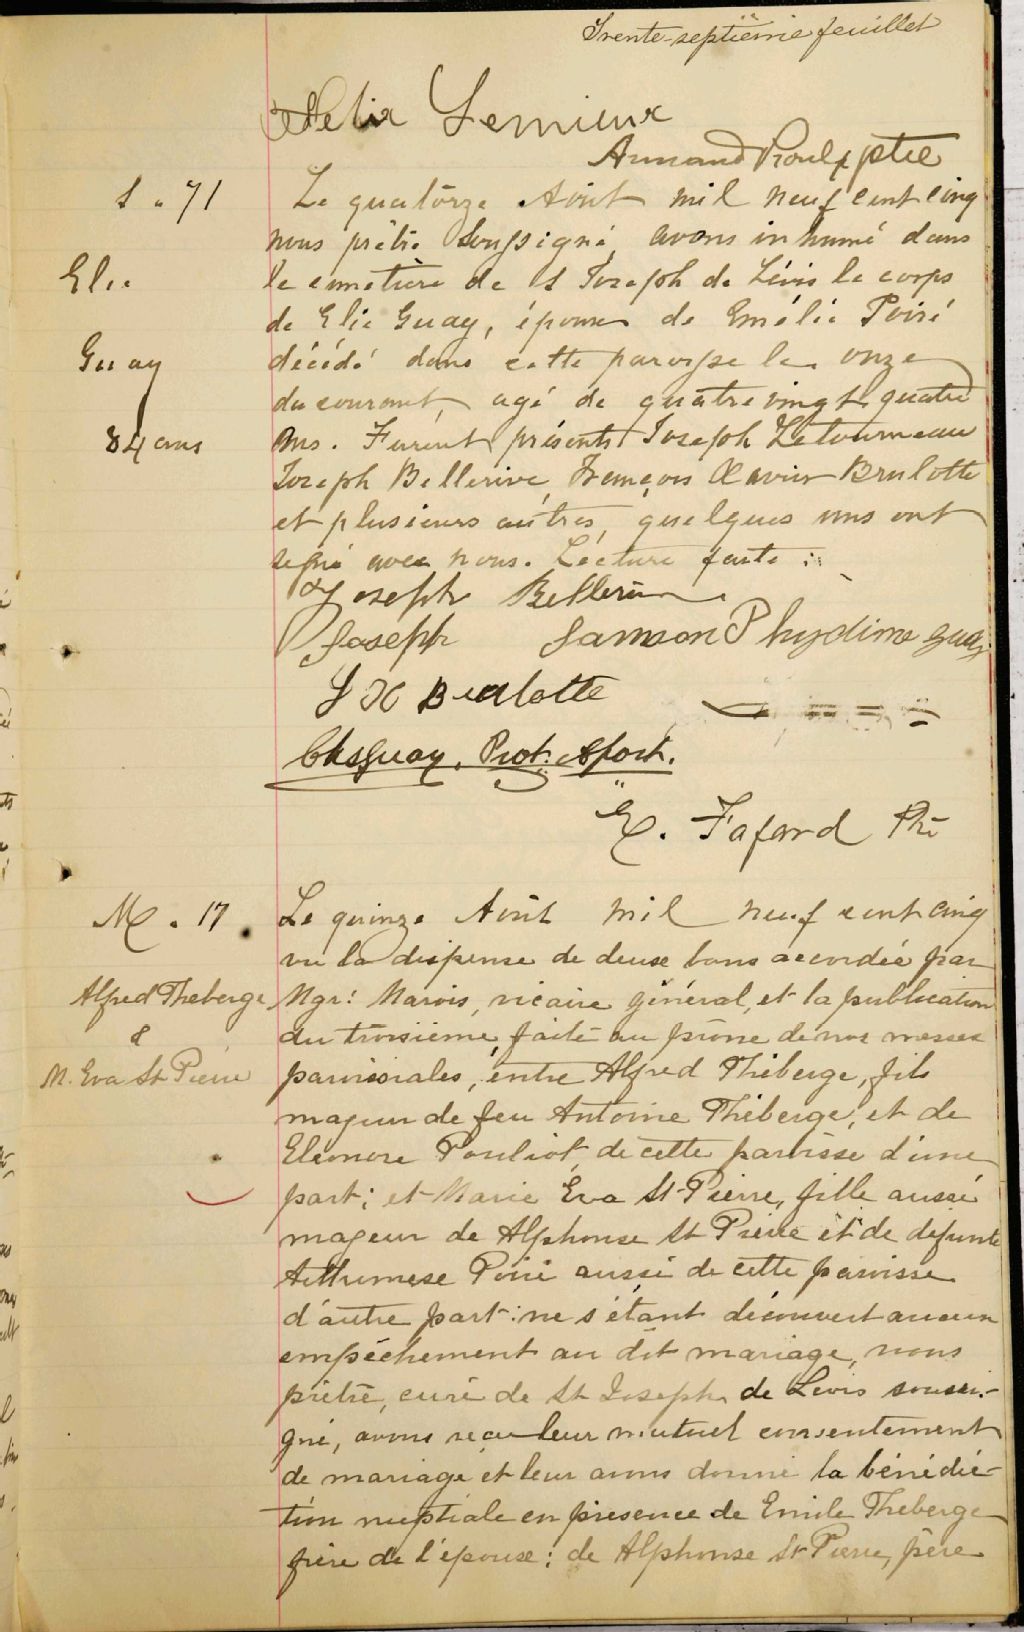 Trente-septième feuillet
Felix Lemieux
Armand Proulx ptre
S. 71
Elie
Guay
84 ans
Le quatorze Août mil neuf cent cinq
nous prêtre soussigné, avons inhumé dans
le cimetière de St Joseph de Lévis le corps
de Elie Guay, époux de Emélie Poiré
décédé dans cette paroisse le onze
du courant, agé de quatre vingt quatre
ans. Furent présents Joseph Letourneau
Joseph Bellerive, François Xavier Brulotte
et plusieurs autres, quelques uns ont
signé avec nous. Lecture faite :
Joseph Bellerive
Joseph Samson Phydime Guay
F X Brulotte
Chs Guay, Prot. Apost.
E. Fafard Ptre
M. 17
Alfred Theberge
&
M. Eva St Pierre
Le quinze Août mil neuf cent cinq
vu la dispense de deux bans accordée par
Mgr: Marois, vicaire général, et la publication
du troisième, faite au prône de nos messes
paroissiales, entre Alfred Théberge, fils
majeur de feu Antoine Théberge, et de
Eléonore Pouliot, de cette paroisse d'une
part; et Marie Eva St-Pierre, fille aussi
majeur de Alphonse St Pierre et de defunte
Poiré aussi de cette paroisse
d'autre part: ne s'étant découvert aucun
empêchement au dit mariage, nous
prêtre, curé de St Joseph de Levis soussi-
gné, avons reçu leur mutuel consentement
de mariage et leur avons donné la bénédic-
tion nuptiale en présence de Emile Theberge
frère de l'épouse: de Alphonse St Pierre, père